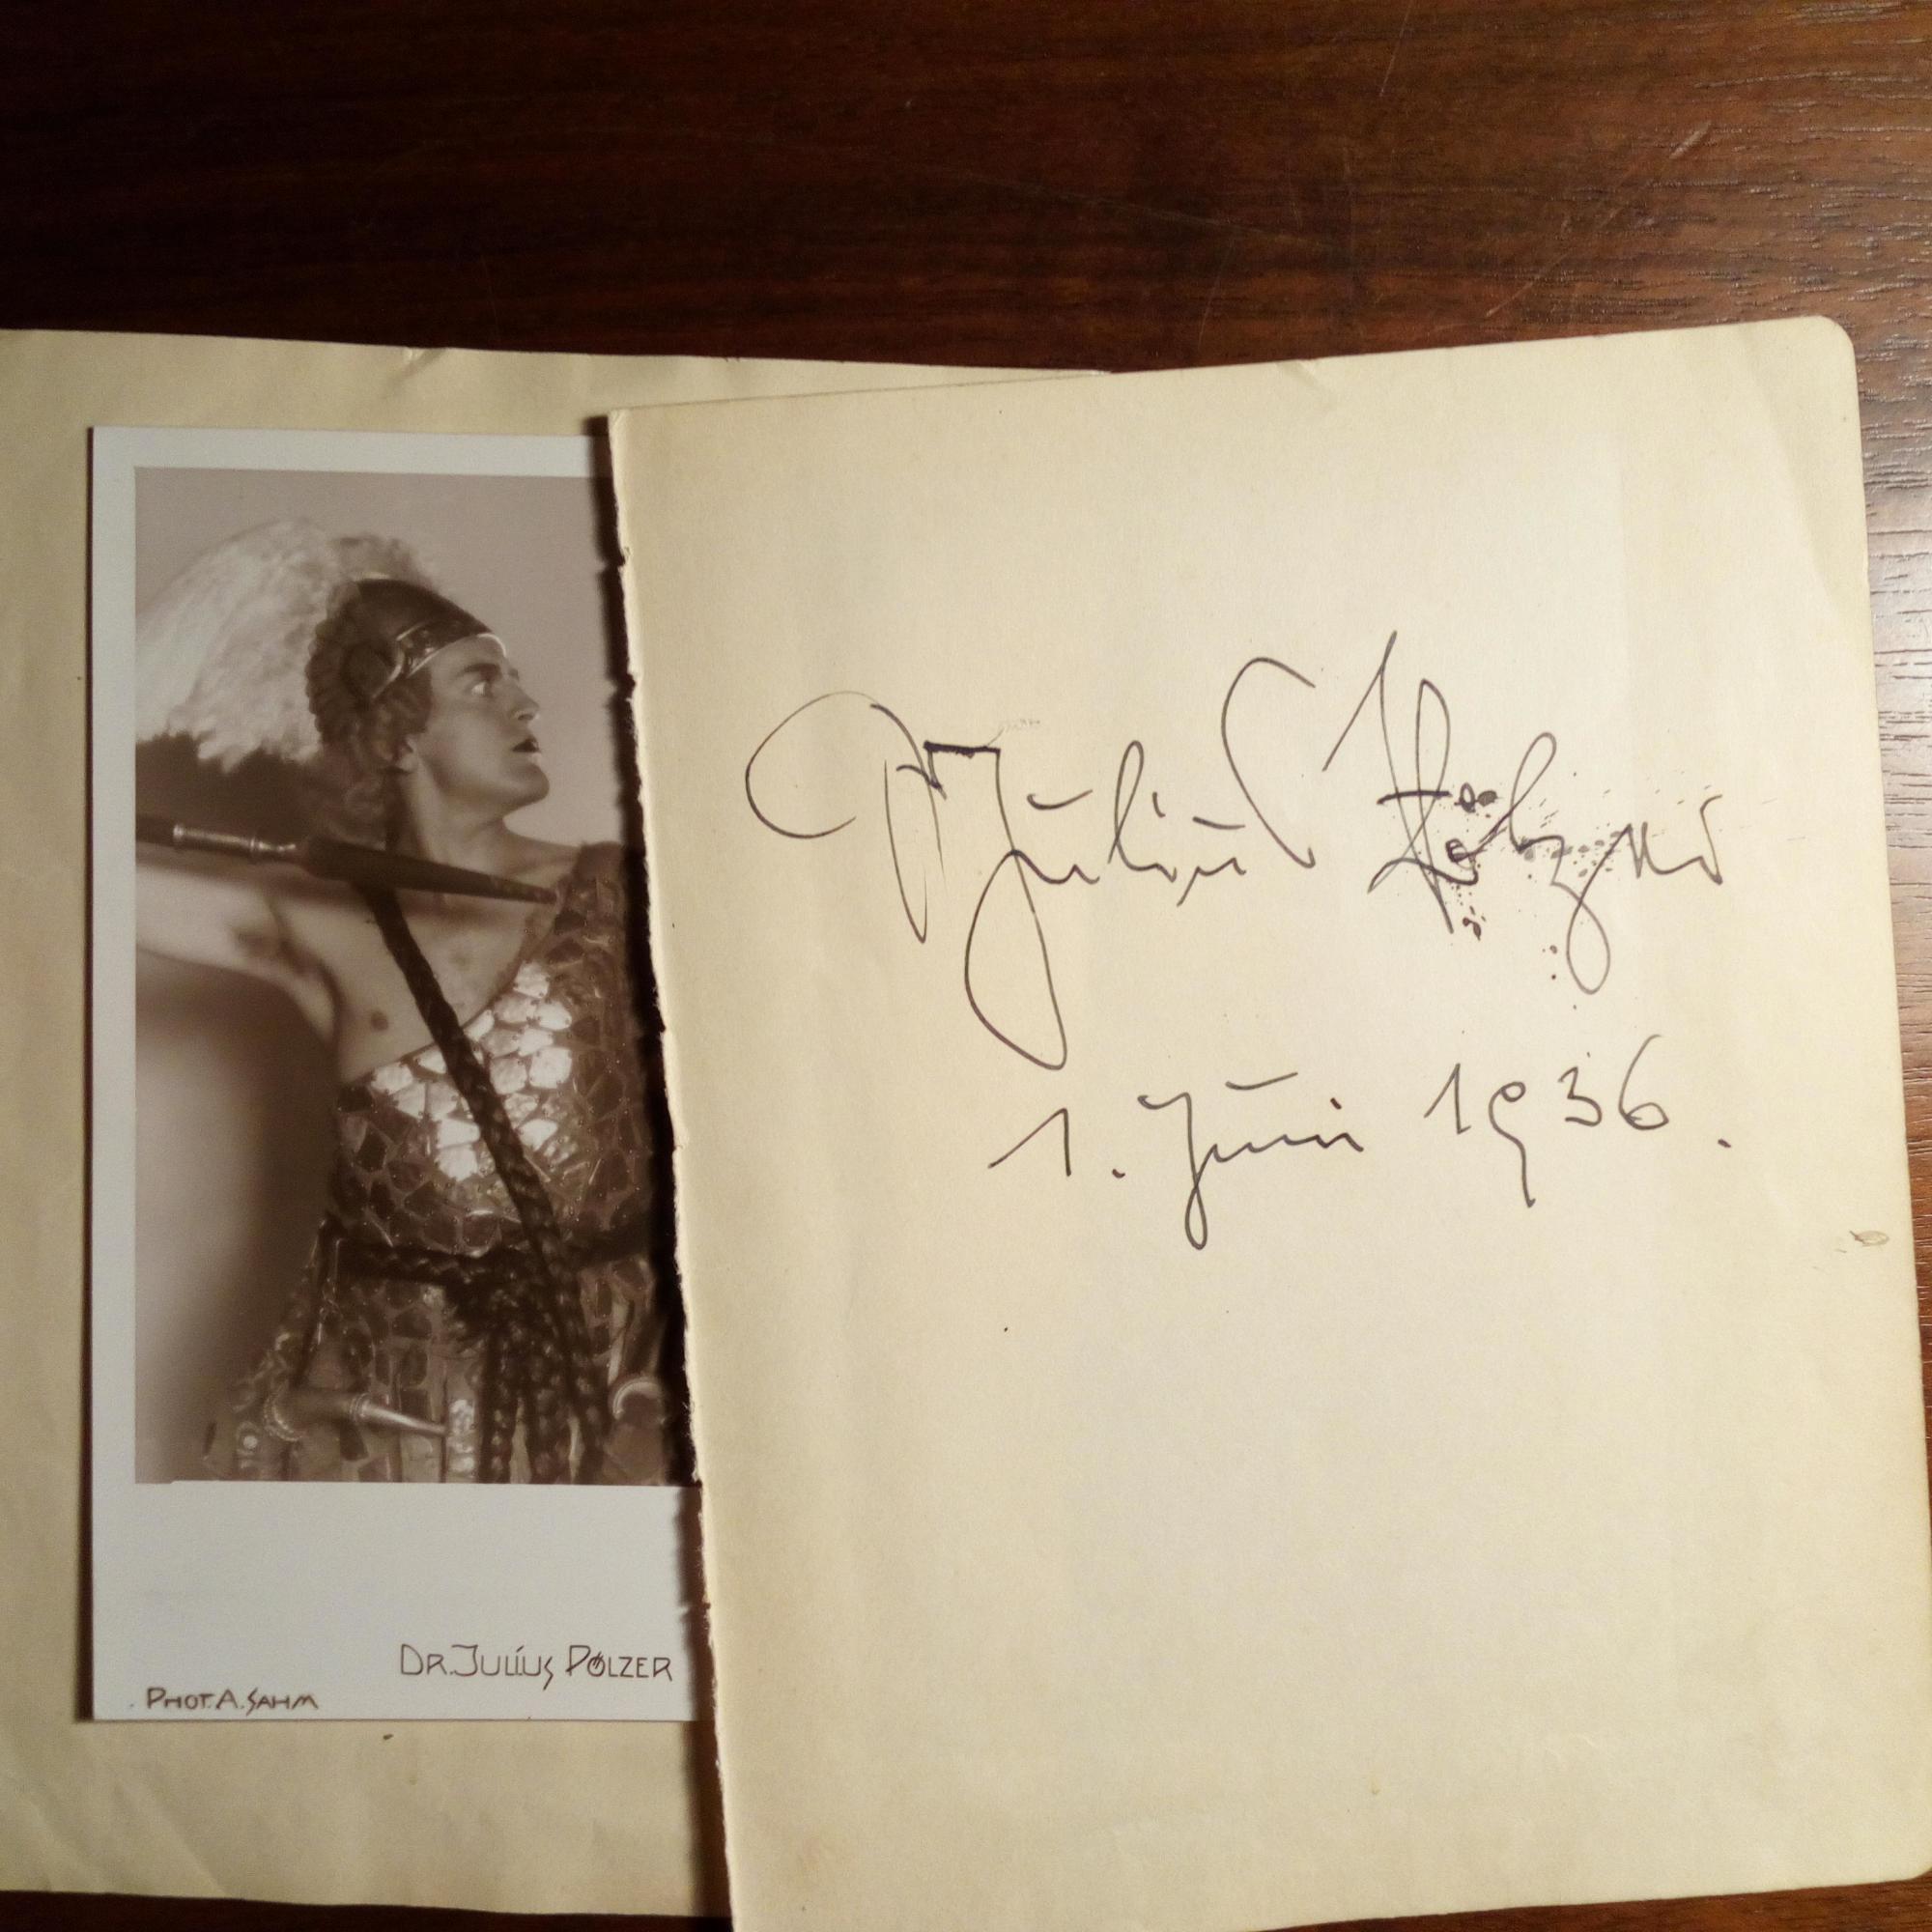 DR. JULIUS PÖLZER
PHOT. A. SAHM
Dr Julius Pölzer
1. Juni 1936.